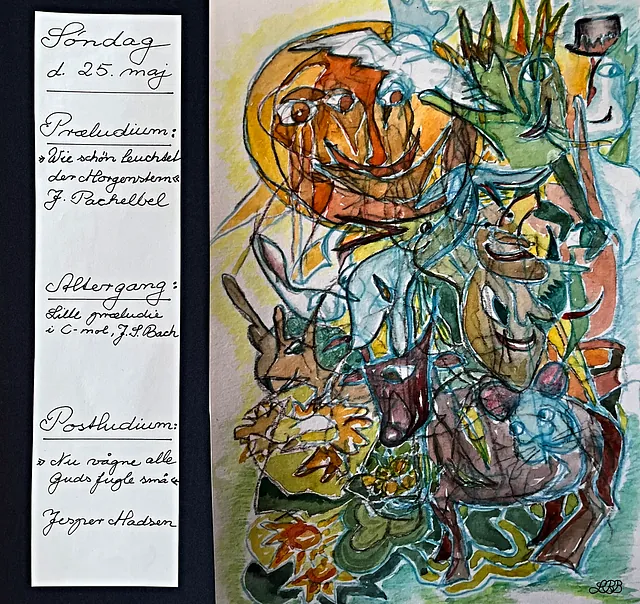 Søndag
d. 25. maj
Præludium:
»Wie schön leuchtet
der Morgenstern«
J. Pachelbel
Altergang:
Lille præludie
i C-mol, J.S. Bach
Postludium:
»Nu vågne alle
Guds fugle små«
Jesper Madsen
LBB